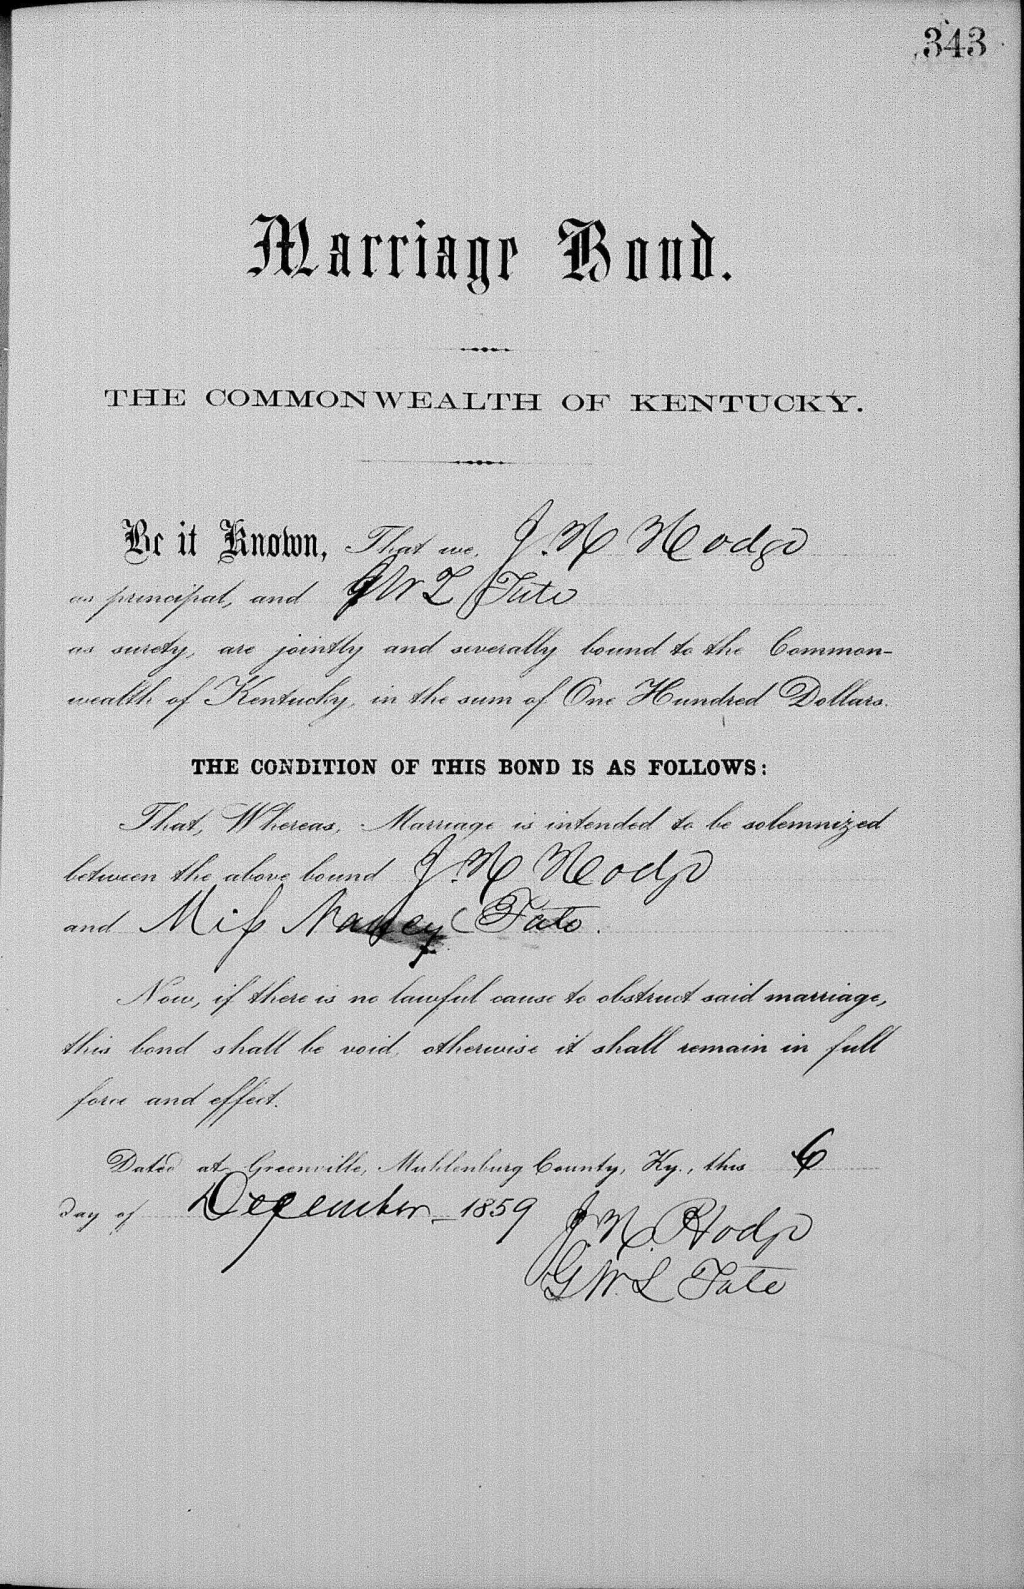 343
Marriage Bond.
THE COMMONWEALTH OF KENTUCKY.
Be it Known, That we, J. N. Hodge
as principal, and G W L Tate
as surety, are jointly and severally bound to the Common-
wealth of Kentucky, in the sum of One Hundred Dollars.
THE CONDITION OF THIS BOND IS AS FOLLOWS:
That, Whereas, Marriage is intended to be solemnized
between the above bound J. N. Hodge
and Miss Nancy Tate.
Now, if there is no lawful cause to obstruct said marriage,
this bond shall be void, otherwise it shall remain in full
force and effect.
Dated at Greenville, Muhlenburg County, Ky., this 6
day of December 1859
J. N. Hodge
G. W. L Tate